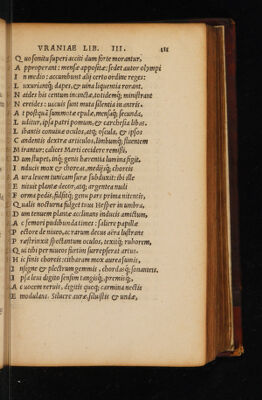 URANIAE LIB. III. 48
Quo sonitu superi acciti dum forte morantur,
Appropérant: mensæ appositæ; sedet autor olympi
In medio: accumbunt alij certo ordine reges:
Luxuriantq; dapes, & uina liquentia rorant.
Aedes his centum incinctæ, totidemq; ministrant
Nereides: uacuis sunt muta silentia in antris.
At postquā summotæ epulæ, mensaq; secunda,
Luditur, ipsa patri pomum, & carchesia libas,
Libantis conuiuæ oculos, atq; oscula, & ipsos
Candentis dextræ articulos, limbumq; fluentem
Mirantur; calices Marti cecidere remissi.
Dum stupet, inq; genis hærentia lumina figit.
Inducis mox & choreas, mediisq; choreis
Aura leuem tunicam suræ subduxit: ibi ille
Enituit plantæ decor, atq; argentea nulli
Forma pedis, fulsitq; genu pars prima nitentis,
Qualis nocturna fulget trux Hesper in umbra.
Dum tenuem plantæ acclinans inducis amictum,
Ac semori pudibunda times: saliere papillæ
Pectore de niueo, ac rarum decus aëra lustrant
Præstrinxit spectantum oculos, texitq; ruborem,
Qui tibi per niueos furtim surrepserat artus.
Hic finis choreis: citharam mox aurea sumis,
Insigne & plectrum gemmis, chordasq; sonanteis.
Ipsa leui digito sensim tangisq;, premisq;
Ac uocem neruis, digitis quoq; carmina nectis
E modulans. Siluere auræ, siluistis & undæ,